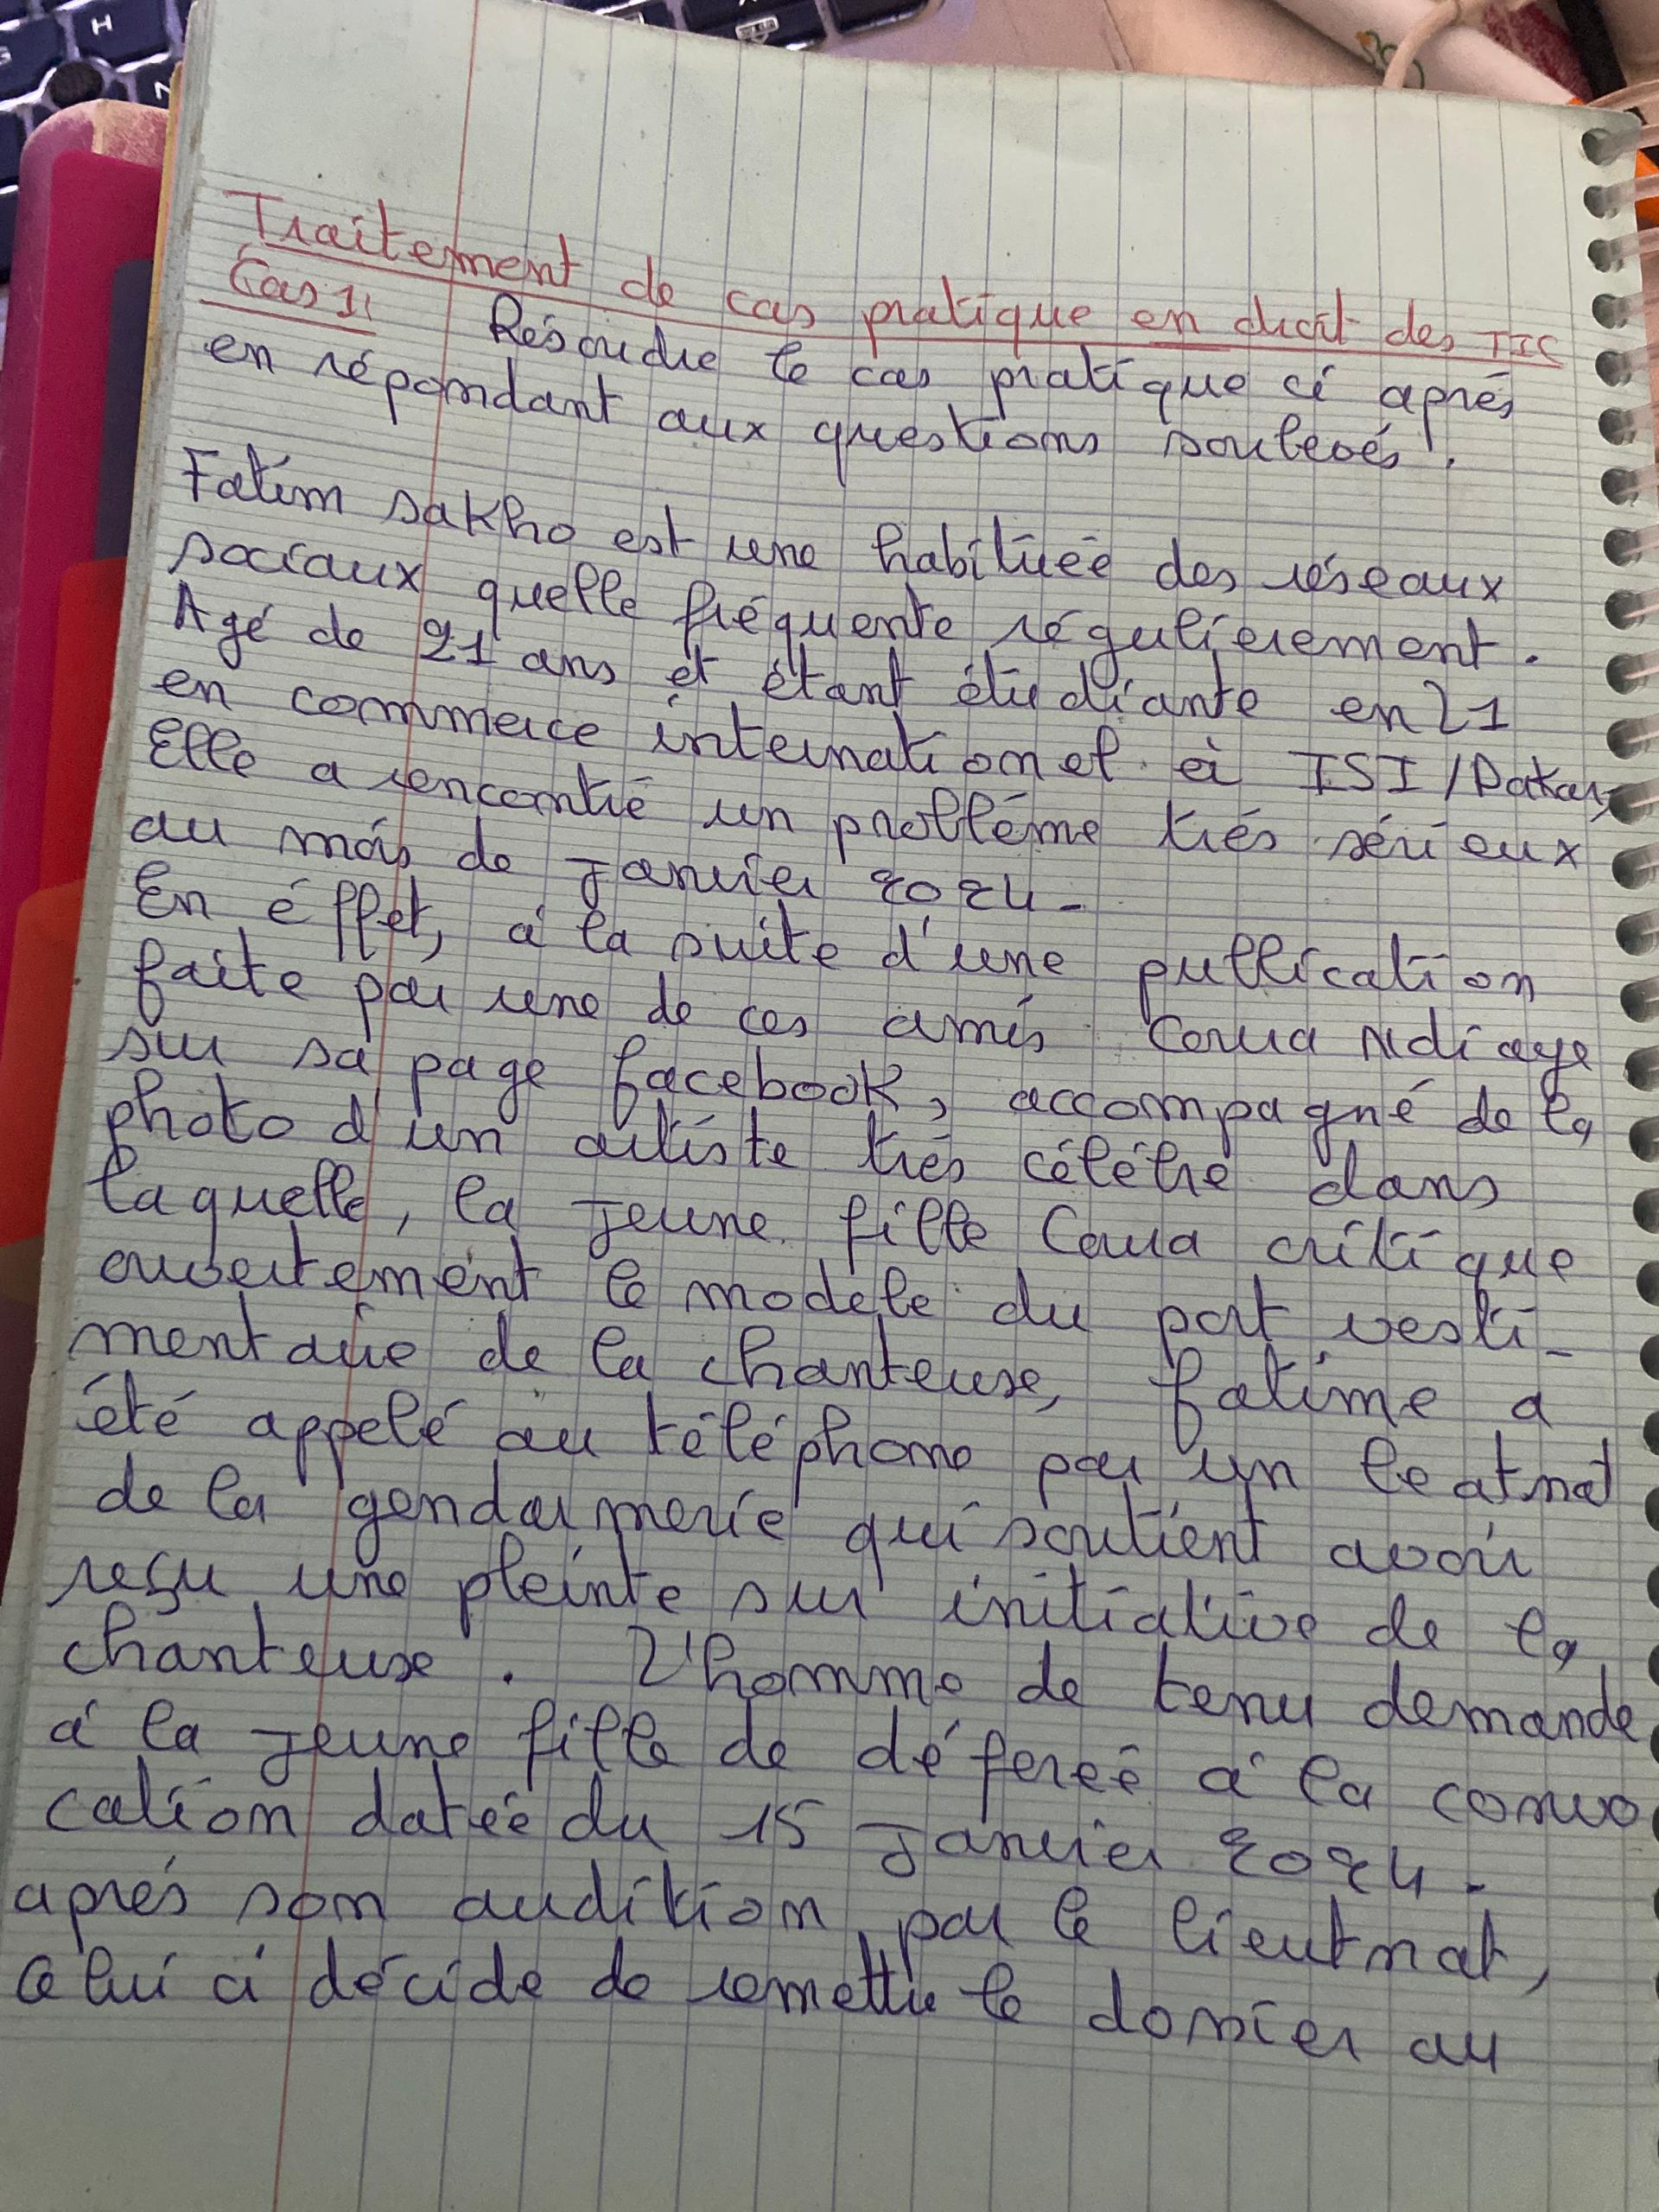 Traitement de cas pratique en droit des TIC
Cas 1: Résoudre le cas pratique ci après
en répondant aux questions soulevés.
Fatim sakho est une habituée des réseaux
sociaux quelle fréquente régulierement.
Agé de 21 ans et étant étudiante en L1
en commerce international à ISI/Dakar,
Elle a rencontré un probléme trés sérieux
au mois de Janvier 2024-
En éffet, à la suite d'une publication
faite par une de ces amis Coura Ndiaye
sur sa page facebook, accompagné de la
photo d'un artiste trés célébre dans
laquelle, la jeune fille Coura critique
ouvertement le modéle du port vesti-
mentaire de la chanteuse, fatime a
été appelé au téléphone par un
de la gendarmerie qui soutient avoir
reçu une pleinte sur initiative de la
chanteuse. L'homme de tenu demande
à la jeune fille de défereé à la convo
cation datée du 15 Janvier 2024-
aprés son audition par le lieutnat,
celui ci décide de remettre le dossier au
H
N